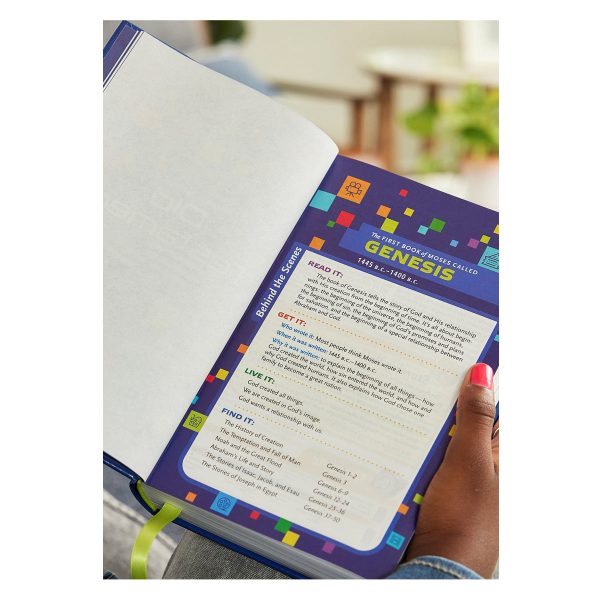 The FIRST BOOK of MOSES CALLED
GENESIS
1445 B.C.–1400 B.C.
Behind the Scenes
READ IT:
The book of Genesis tells the story of God and His relationship
with His creation from the beginning of time. It's all about begin-
nings: the beginning of the universe, the beginning of humans,
the beginning of sin, the beginning of God's promises and plans
for salvation, and the beginning of a special relationship between
Abraham and God.
GET IT:
Who wrote it: Most people think Moses wrote it.
When it was written: 1445 B.C.–1400 B.C.
Why it was written: to explain the beginning of all things—how
God created the world, how sin entered the world, and how and
why God created humans. It also explains how God chose one
family to become a great nation.
LIVE IT:
God created all things.
We are created in God's image.
God wants a relationship with us.
FIND IT:
The History of Creation Genesis 1–2
The Temptation and Fall of Man Genesis 3
Noah and the Great Flood Genesis 6–9
Abraham's Life and Story Genesis 12–24
The Stories of Isaac, Jacob, and Esau Genesis 25–36
The Stories of Joseph in Egypt Genesis 37–50